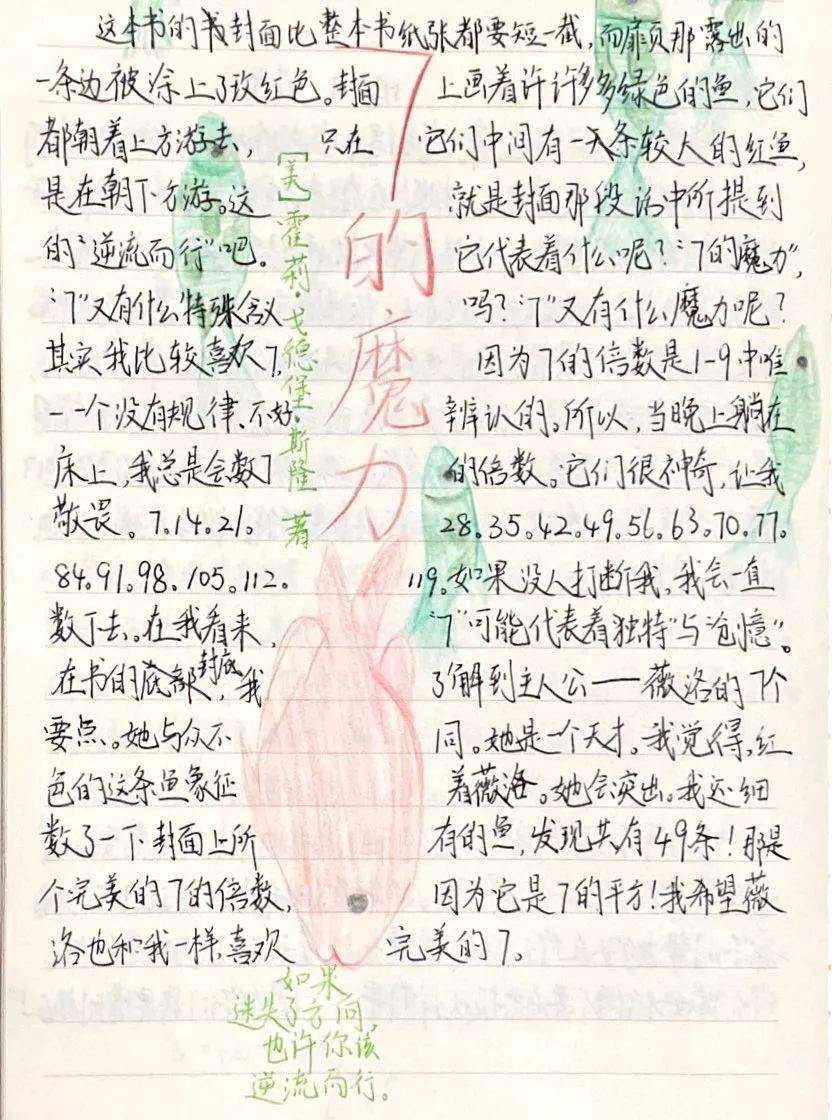 这本书的封面比整本书纸张都要短一截，而扉页那露出的
一条边被涂上了玫红色。封面上画着许许多多绿色的鱼，它们
都朝着上方游去，只在它们中间有一条较大的红鱼，
是在朝下方游。这就是封面那段话中所提到
的“逆流而行”吧。它代表着什么呢？“7的魔力”，
“7”又有什么特殊含义吗？“7”又有什么魔力呢？
其实我比较喜欢7，因为7的倍数是1-9中唯
一一个没有规律、不好辨认的。所以，当晚上躺在
床上，我总是会数7的倍数。它们很神奇，让我
敬畏。7。14。21。28。35。42。49。56。63。70。77。
84。91。98。105。112。119。如果没人打断我，我会一直
数下去。在我看来，“7”可能代表着“独特”与“治愈”。
在书的底部封底，我了解到主人公——薇洛的7个
要点。她与众不同。她是一个天才。我觉得，红
色的这条鱼象征着薇洛。她会突出。我还细
数了一下封面上所有的鱼，发现共有49条！那是
个完美的7的倍数，因为它是7的平方！我希望薇
洛也和我一样，喜欢完美的7。
7的魔力
[美]霍莉·戈德堡·斯隆 著
如果
迷失了方向，
也许你该
逆流而行。